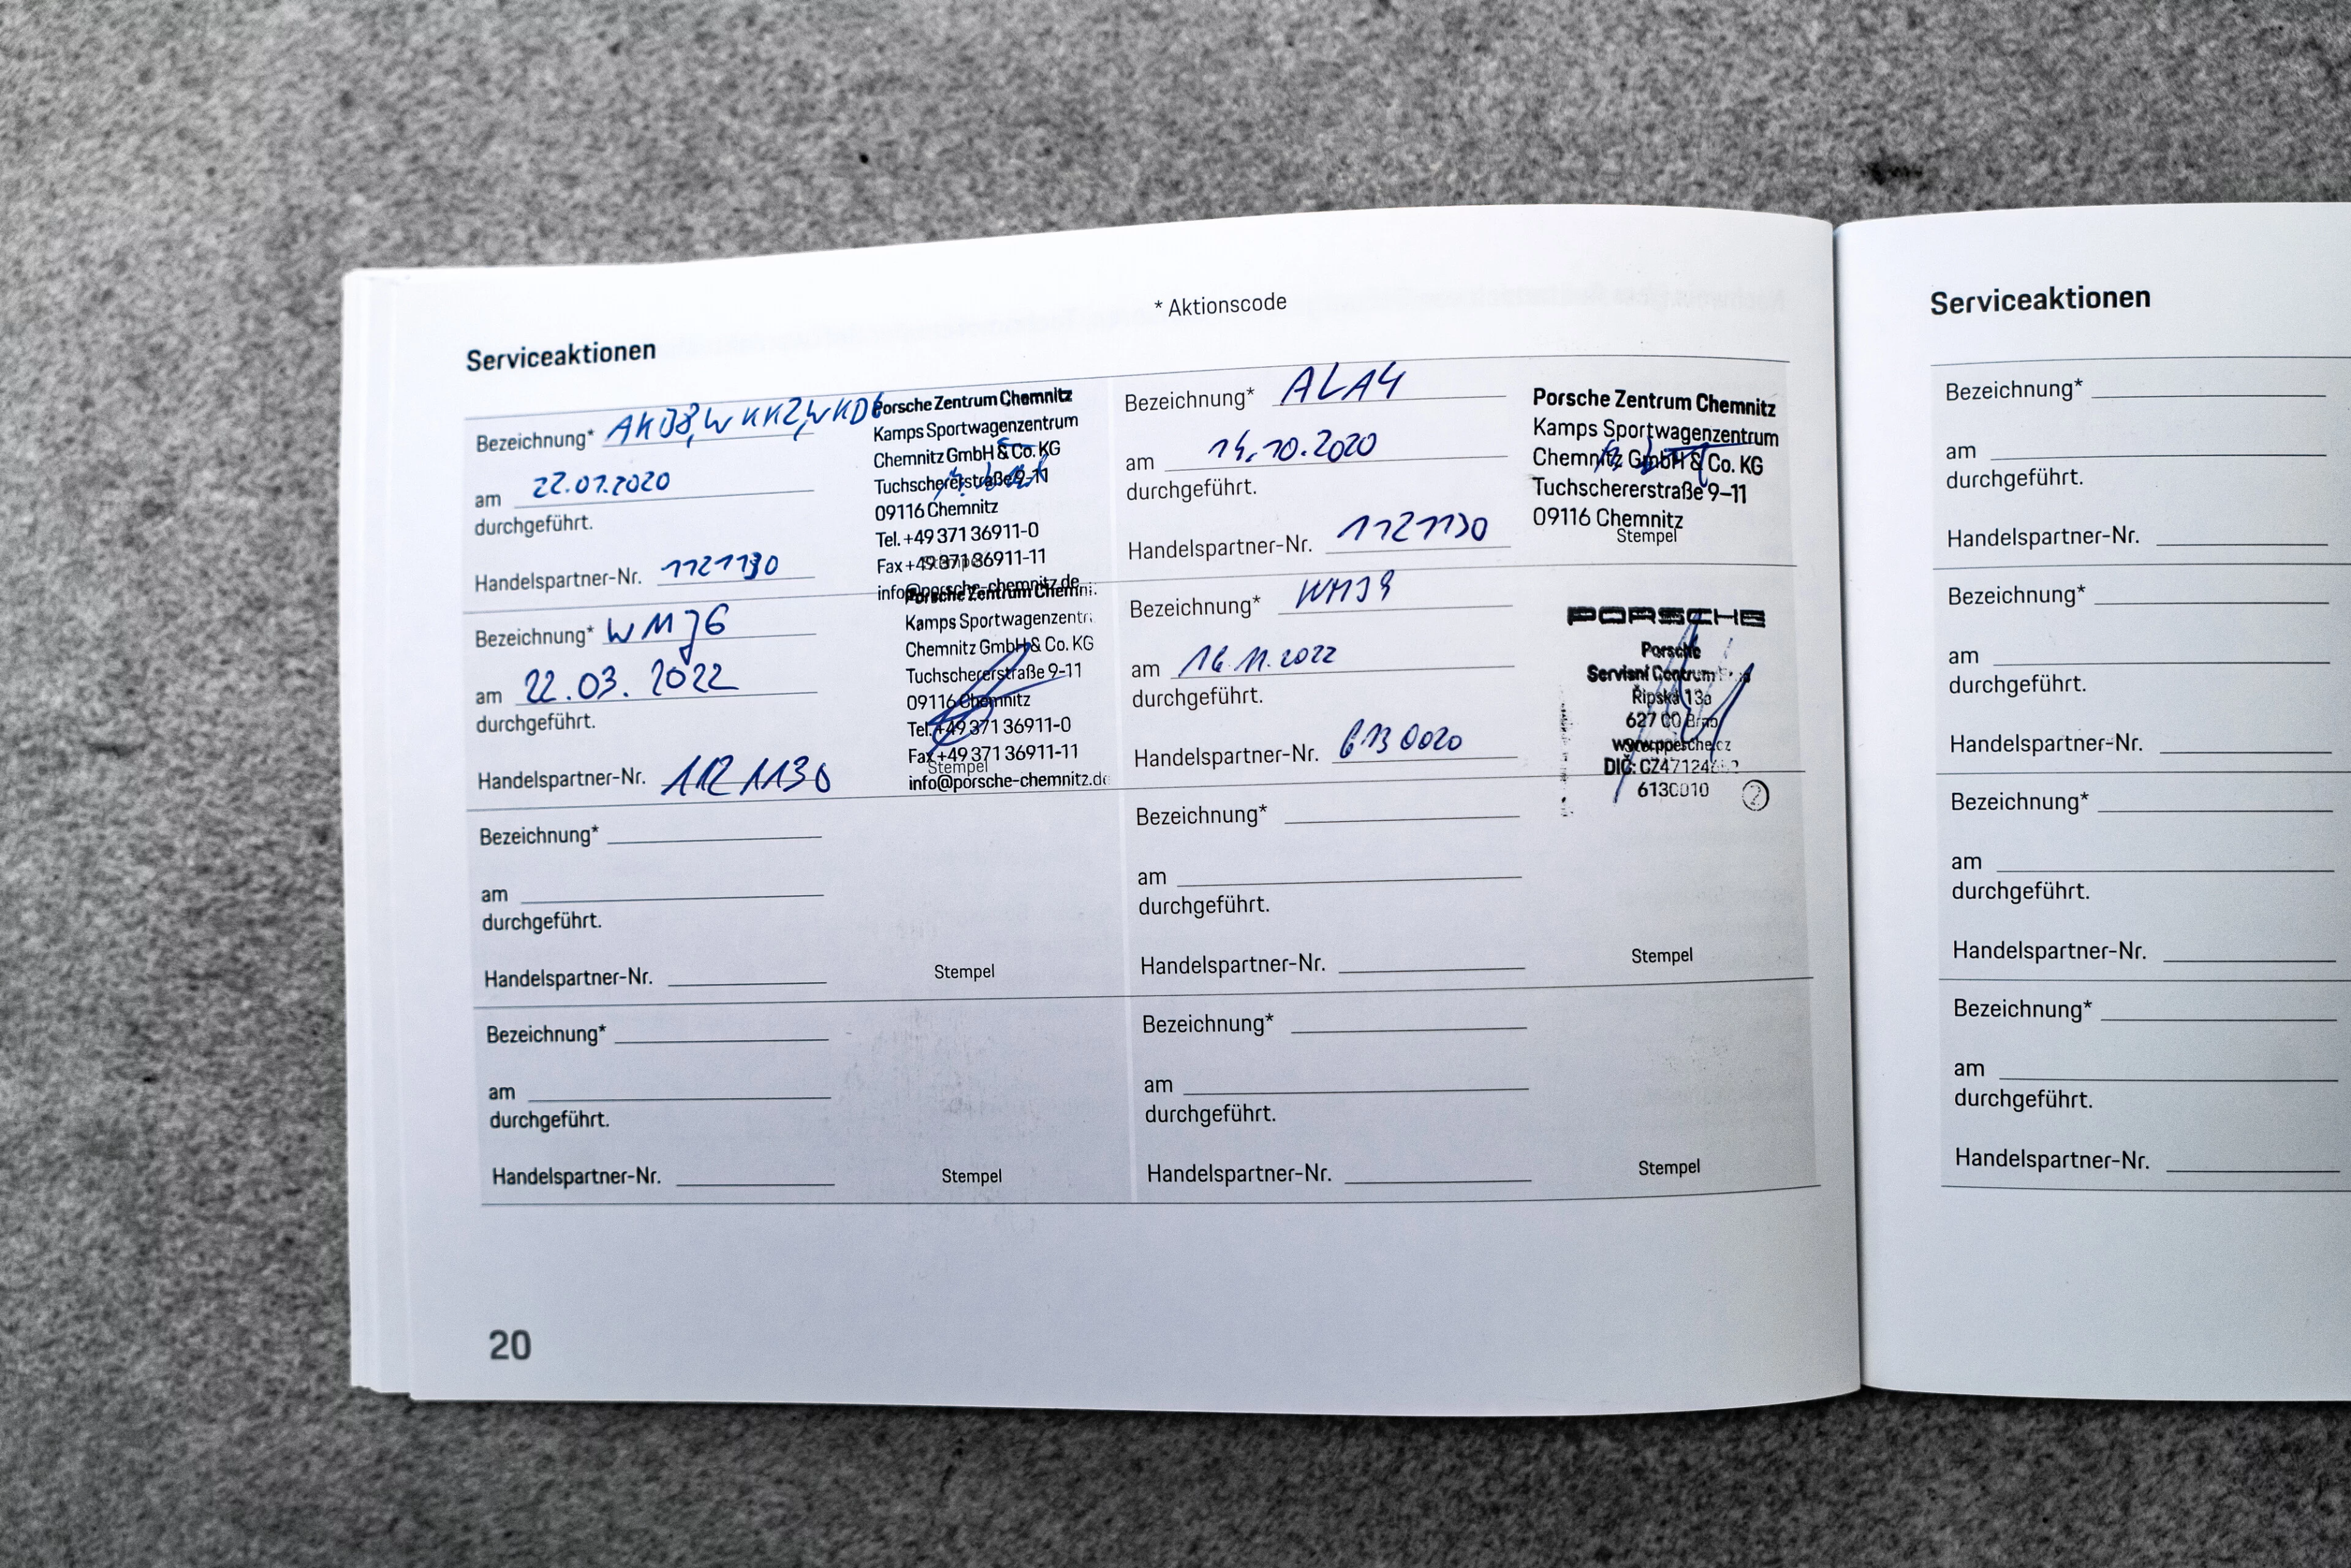 * Aktionscode
Serviceaktionen
Bezeichnung*
am 22.07.2020
durchgeführt.
Handelspartner-Nr. 1121130
Porsche Zentrum Chemnitz
Kamps Sportwagenzentrum
Chemnitz GmbH & Co. KG
Tuchschererstraße 9-11
09116 Chemnitz
Tel. +49 371 36911-0
Fax +49 371 36911-11
info@porsche-chemnitz.de
Bezeichnung* ALA4
am 14.10.2020
durchgeführt.
Handelspartner-Nr. 1121130
Porsche Zentrum Chemnitz
Kamps Sportwagenzentrum
Chemnitz GmbH & Co. KG
Tuchschererstraße 9–11
09116 Chemnitz
Stempel
Bezeichnung* WMJ6
am 22.03.2022
durchgeführt.
Handelspartner-Nr. 1121130
Porsche Zentrum Chemni
Kamps Sportwagenzentr
Chemnitz GmbH & Co. KG
Tuchschererstraße 9-11
09116 Chemnitz
Tel. +49 371 36911-0
Fax +49 371 36911-11
Stempel
info@porsche-chemnitz.de
Bezeichnung* WMJ9
am 16.11.2022
durchgeführt.
Handelspartner-Nr. 6130020
PORSCHE
Porsche
Servisní Centrum
Řipská 13a
627 00 Brno
DIČ:
6130010
2
Bezeichnung*
am
durchgeführt.
Handelspartner-Nr.
Stempel
Bezeichnung*
am
durchgeführt.
Handelspartner-Nr.
Stempel
Bezeichnung*
am
durchgeführt.
Handelspartner-Nr.
Stempel
Bezeichnung*
am
durchgeführt.
Handelspartner-Nr.
Stempel
20
Serviceaktionen
Bezeichnung*
am
durchgeführt.
Handelspartner-Nr.
Bezeichnung*
am
durchgeführt.
Handelspartner-Nr.
Bezeichnung*
am
durchgeführt.
Handelspartner-Nr.
Bezeichnung*
am
durchgeführt.
Handelspartner-Nr.